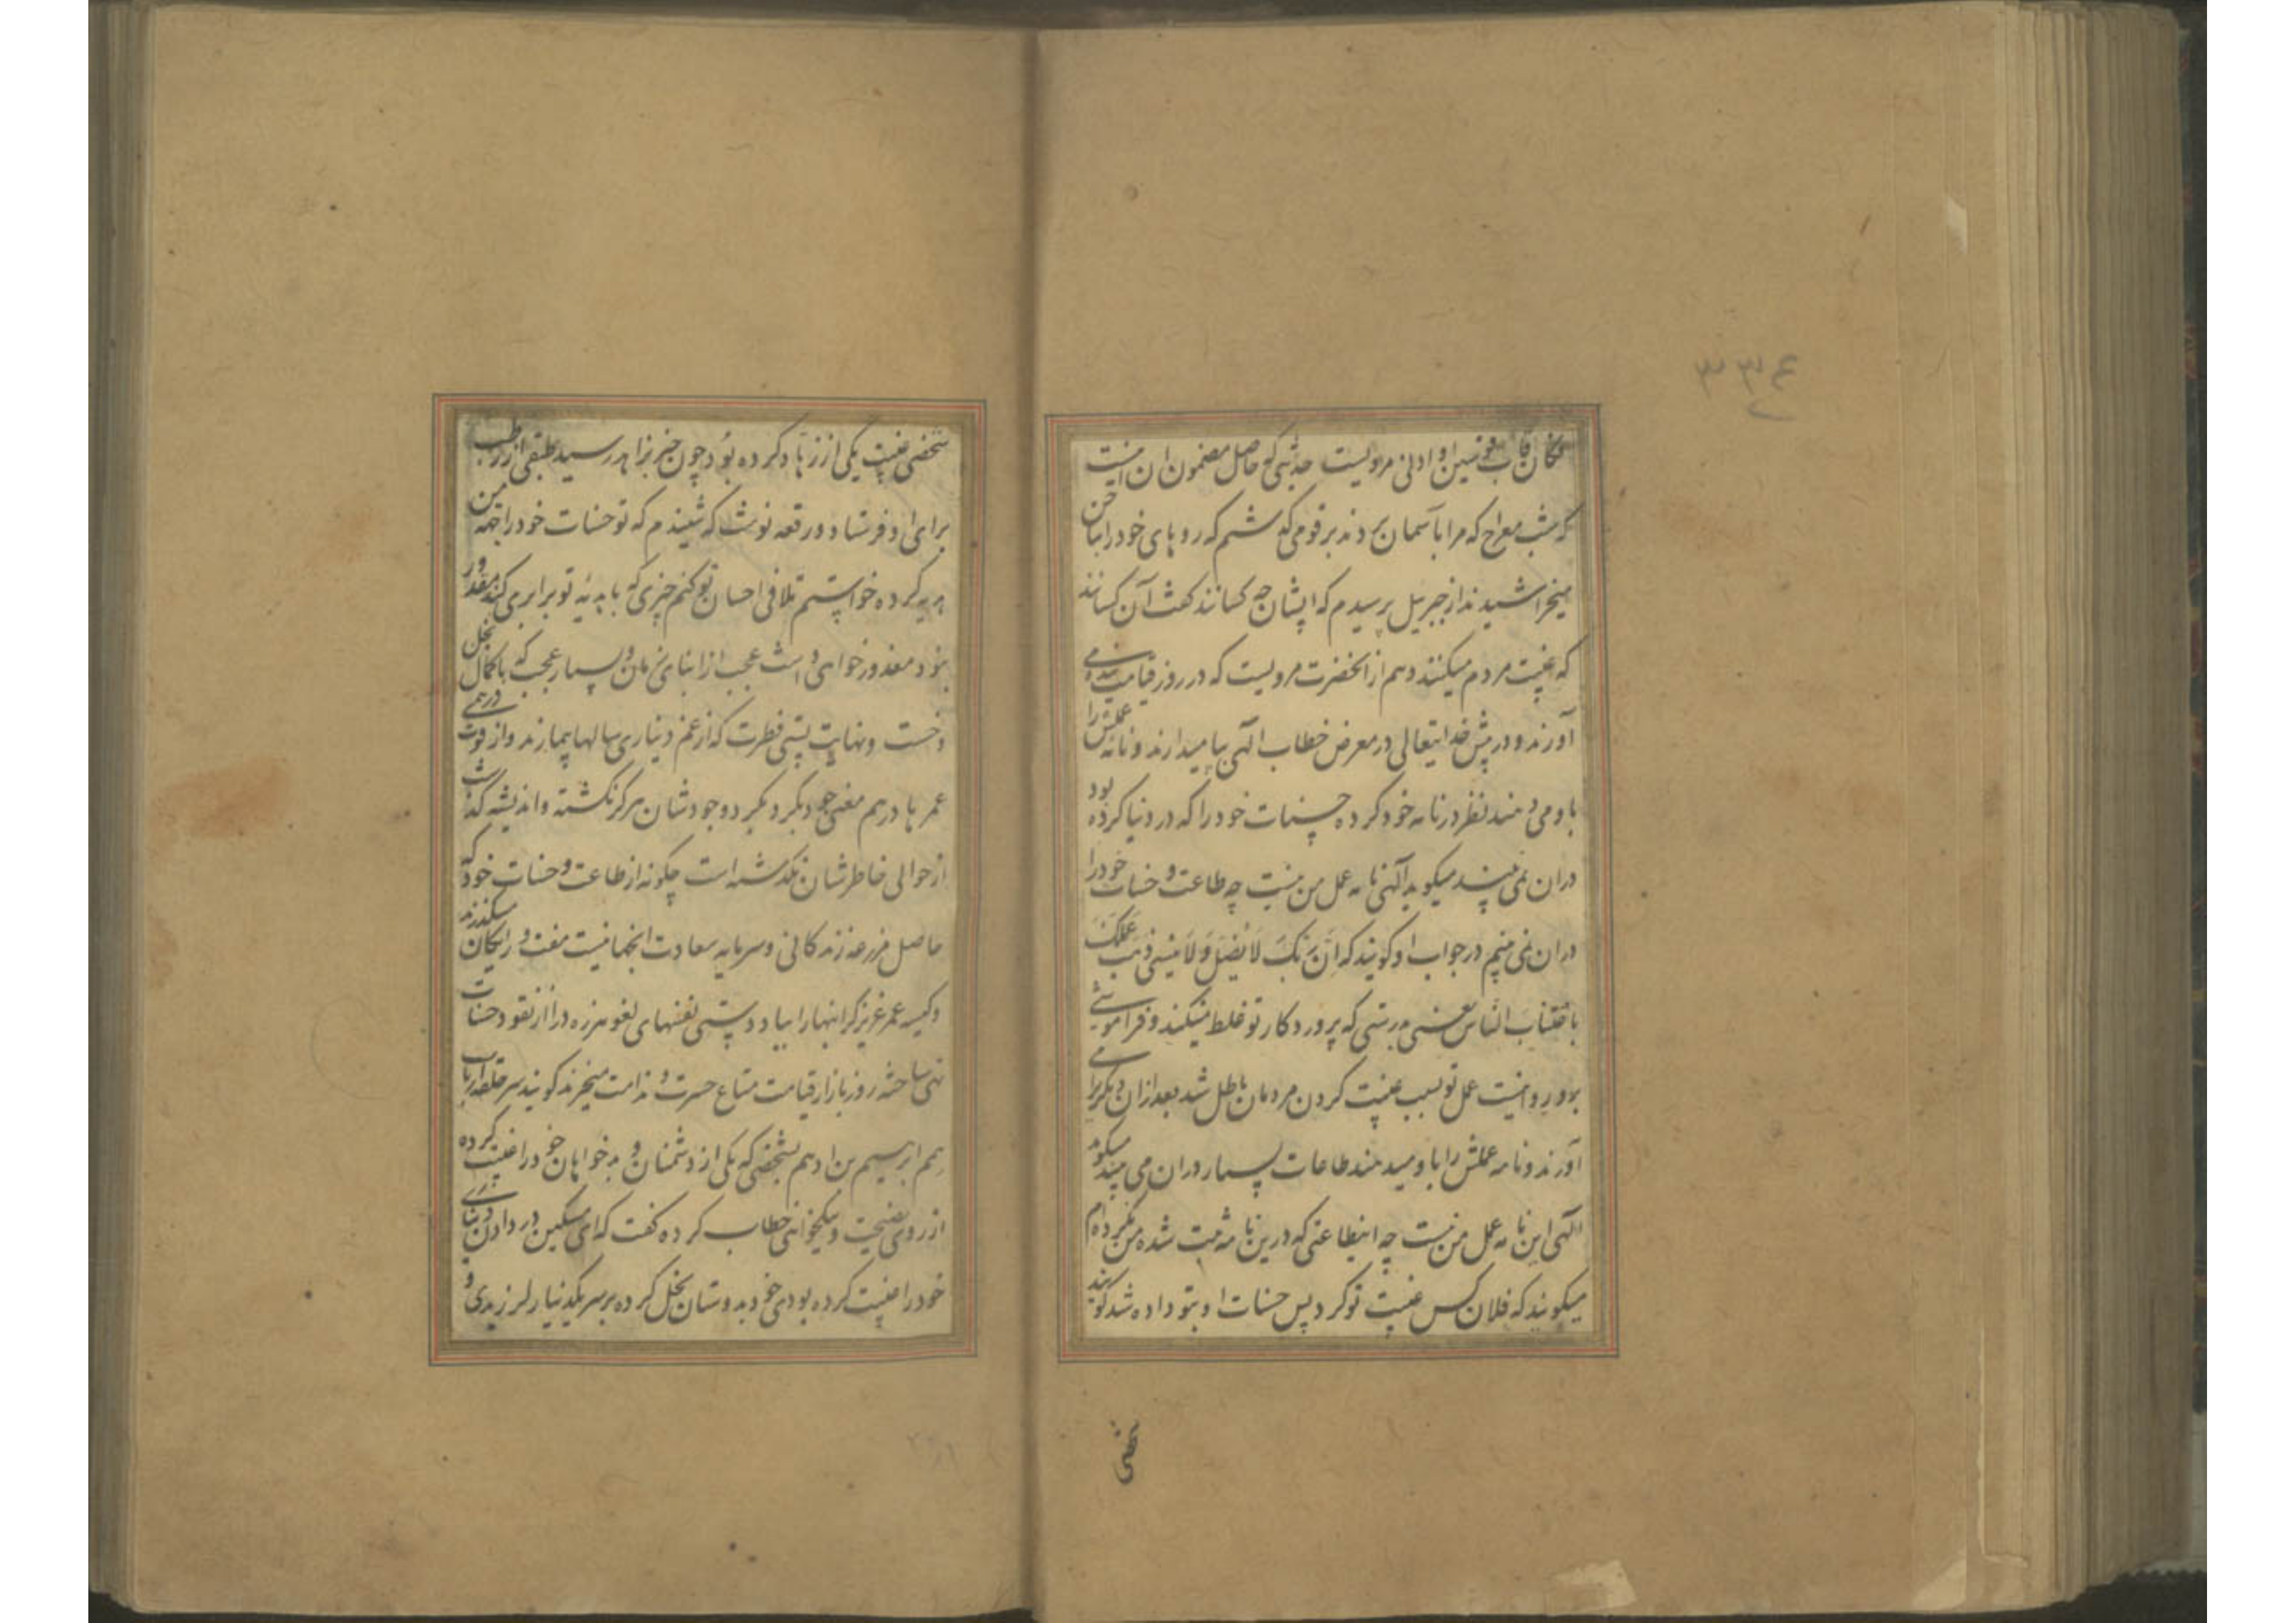 مکان قاب قوسین او ادنی مرویست حدیثی که حاصل مضمون آن اینست
که شب معراج که مرا بآسمان بردند بر قومی گذشتم که رویهای خود را بناخن
میخراشیدند از جبرئیل پرسیدم که ایشان چه کسانند گفت آن کسانند
که غیبت مردم میکنند و هم از آنحضرت مرویست که در روز قیامت بنده می
آورند و در پیش خدایتعالی در معرض خطاب الهی بپا میدارند و نامه عملش را
باو میدهند نظر در نامه خود کرده حسنات خود را که در دنیا کرده بود
در آن نمی بیند میگوید آلهی نامه عمل من نیست چه طاعت و حسنات خود را
در آن نمی بینم در جواب او گویند که ان ربک لا یضل و لا ینسی ذهب عملک
باغتیاب الناس یعنی بدرستی که پروردگار تو غلط نمیکند و فراموشی
برو روا نیست عمل تو بسبب غیبت کردن مردمان باطل شد بعد از آن دیگری را می
آورند و نامه عملش را باو میدهند طاعات بسیار در آن می بیند میگوید
الهی این نامه عمل من نیست چه این طاعتی که درین نامه ثبت شده من نکرده ام
میگویند که فلان کس غیبت تو کرد پس حسنات او بتو داده شد گویند
۳۳۴
شخصی غیبت یکی از زهاد کرده بود چون خبر بزاهد رسید طبقی از رطب
برای او فرستاد و رقعه نوشت که شنیدم که تو حسنات خود را بجهة من
هدیه کرده خواستم تلافی احسان تو کنم چیزی که با هدیه تو برابری کند مقدور
نبود معذور خواهی داشت عجب از ابنای زمان و بسیار عجب که با کمال بخل
و خست و نهایت پستی فطرت که از غم دیناری سالها بیمارند و از فوت درهمی
عمرها درهم مغزی جو دیگر دیگر دو جودشان هرگز نگشته و اندیشه گذشت
از حوالی خاطرشان نگذشته است چگونه از طاعت و حسنات خود که
حاصل مزرعه زندگانی و سرمایه سعادت آنجهانیست مفت و رایگان میگذرند
و کیسه عمر عزیز گرانبها را بباد دستی نفسهای لغو هرزه درا از نقود حسنات
تهی ساخته روز بازار قیامت متاع حسرت و ندامت میخرند گویند سر حلقه ارباب
همم ابرهیم بن ادهم بشخصی که یکی از دشمنان و بدخواهان خود را غیبت کرده
از روی نصیحت و نیکخواهی خطاب کرده گفت که ای مسکین در دادن دنیای
خود را غیبت کرده بودی خود بدوستان بخل کرده بر سر یکدینار لرزیدی و
شخصی